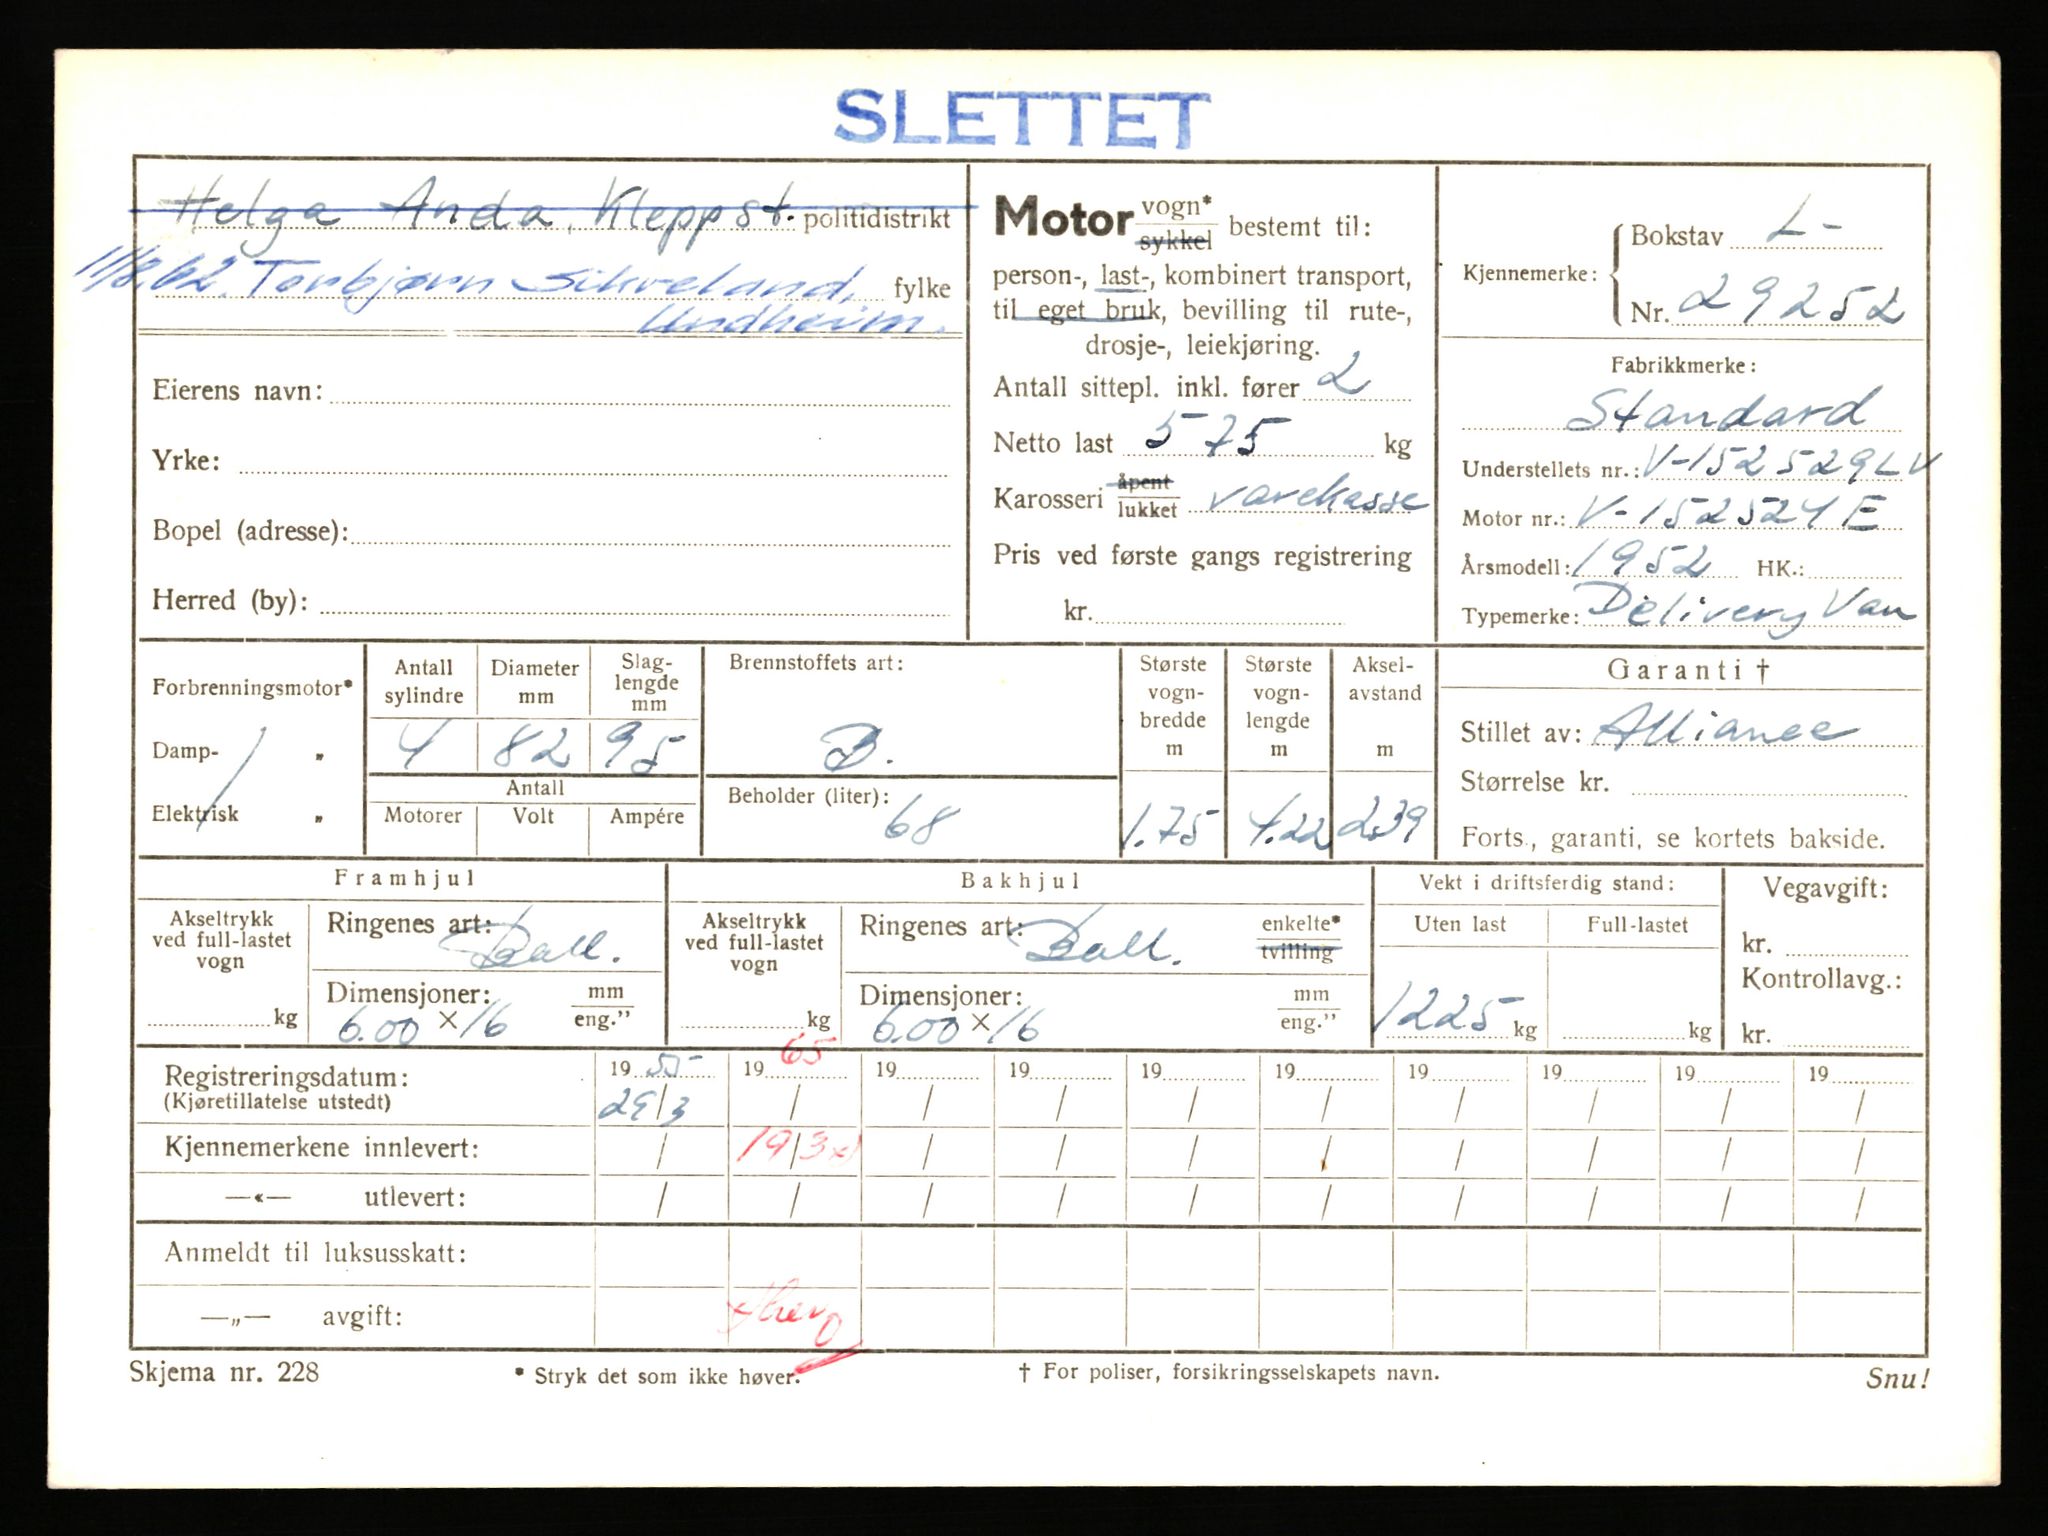 SLETTET
Helga Anda, Kleppst. politidistrikt
11/8.62. Torbjørn Sikveland, fylke
Undheim.
Eierens navn:
Yrke:
Bopel (adresse):
Herred (by):
Motor vogn* sykkel bestemt til:
person-, last-, kombinert transport,
til eget bruk, bevilling til rute-,
drosje-, leiekjøring.
Antall sittepl. inkl. fører 2
Netto last 575 kg
Karosseri åpent lukket varekasse
Pris ved første gangs registrering
kr.
Kjennemerke: Bokstav L-
Nr. 29252
Fabrikkmerke:
Standard
Understellets nr.: V-152529LV
Motor nr.: V-152524E
Årsmodell: 1952 HK.:
Typemerke: Delivery Van
Forbrenningsmotor*
Damp- „
Elektrisk „
Antall sylindre
4
Diameter mm
82
Slag-lengde mm
95
Antall
Motorer Volt Ampére
Brennstoffets art:
B.
Beholder (liter):
68
Største vogn-bredde m
1.75
Største vogn-lengde m
4.22
Aksel-avstand m
2.39
Garanti †
Stillet av: Alliance
Størrelse kr.
Forts., garanti, se kortets bakside.
Framhjul
Akseltrykk ved full-lastet vogn
kg
Ringenes art: Ball.
Dimensjoner: mm eng.”
6.00 x 16
Bakhjul
Akseltrykk ved full-lastet vogn
kg
Ringenes art: Ball. enkelte* tvilling
Dimensjoner: mm eng.”
6.00 x 16
Vekt i driftsferdig stand:
Uten last Full-lastet
1225 kg kg
Vegavgift:
kr.
Kontrollavg.:
kr.
Registreringsdatum: 19 55 19 65 19 19 19 19 19 19 19 19
(Kjøretillatelse utstedt) 29/3 / / / / / / / / /
Kjennemerkene innlevert: / 19/3 / / / / / / / /
—«— utlevert: / / / / / / / / / /
Anmeldt til luksusskatt:
—„— avgift:
Skjema nr. 228 * Stryk det som ikke høver. † For poliser, forsikringsselskapets navn. Snu!